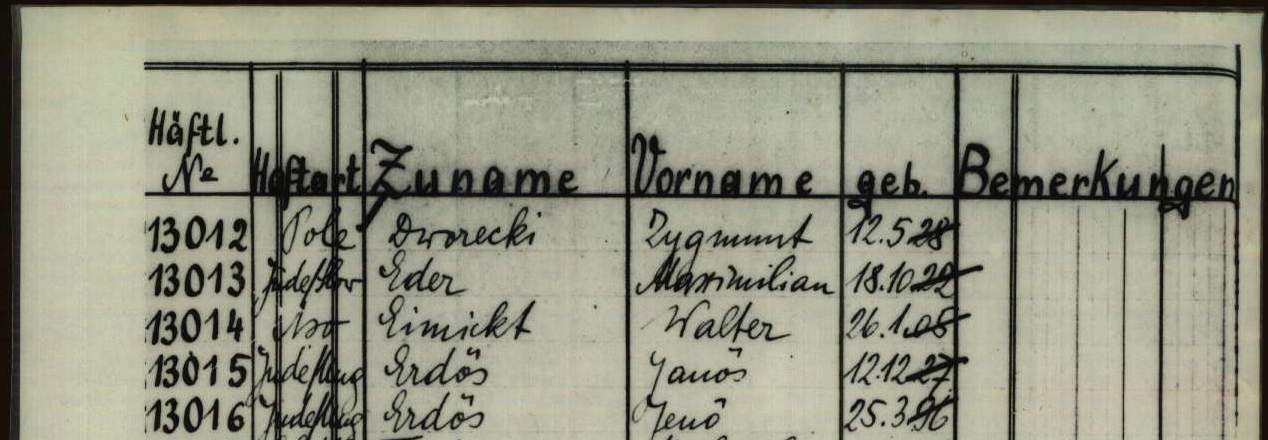 Häftl. № Haftart Zuname Vorname geb. Bemerkungen
13012 Pole Dworecki Zygmunt 12.5.28
13013 Eder Maximilian 18.10.22
13014 Aso Eimickt Walter 26.1.05
13015 Erdös Janös 12.12.27
13016 Erdös Jenö 25.3.96